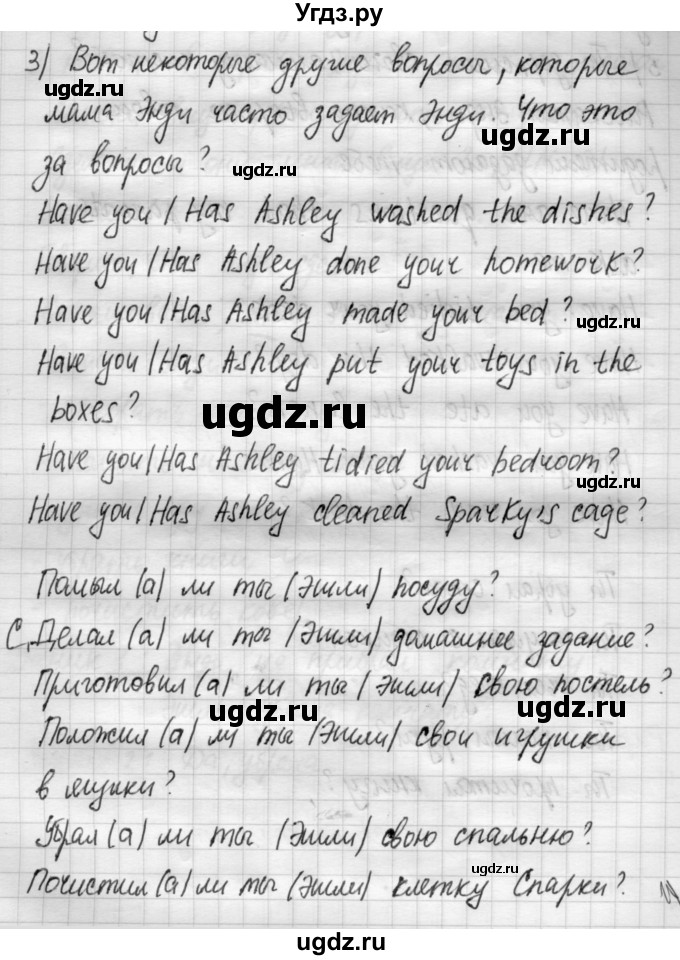 Угдз.ру
3) Вот некоторые другие вопросы, которые
ugdz.ru
мама Энди часто задает Энди. Что это
ugdz.ru
за вопросы?
ugdz.ru
Have you / Has Ashley washed the dishes?
Have you / Has Ashley done your homework?
Have you / Has Ashley made your bed?
ugdz.ru
Have you / Has Ashley put your toys in the
boxes?
ugdz.ru
Have you / Has Ashley tidied your bedroom?
ugdz.ru
Have you / Has Ashley cleaned Sparky's cage?
Помыл (а) ли ты (Эшли) посуду?
ugdz.ru
Сделал (а) ли ты (Эшли) домашнее задание?
ugdz.ru
Приготовил (а) ли ты (Эшли) свою постель?
ugdz.ru
ugdz.ru
Положил (а) ли ты (Эшли) свои игрушки
в ящики?
Убрал (а) ли ты (Эшли) свою спальню?
ugdz.ru
Почистил (а) ли ты (Эшли) клетку Спарки?
ugdz.ru